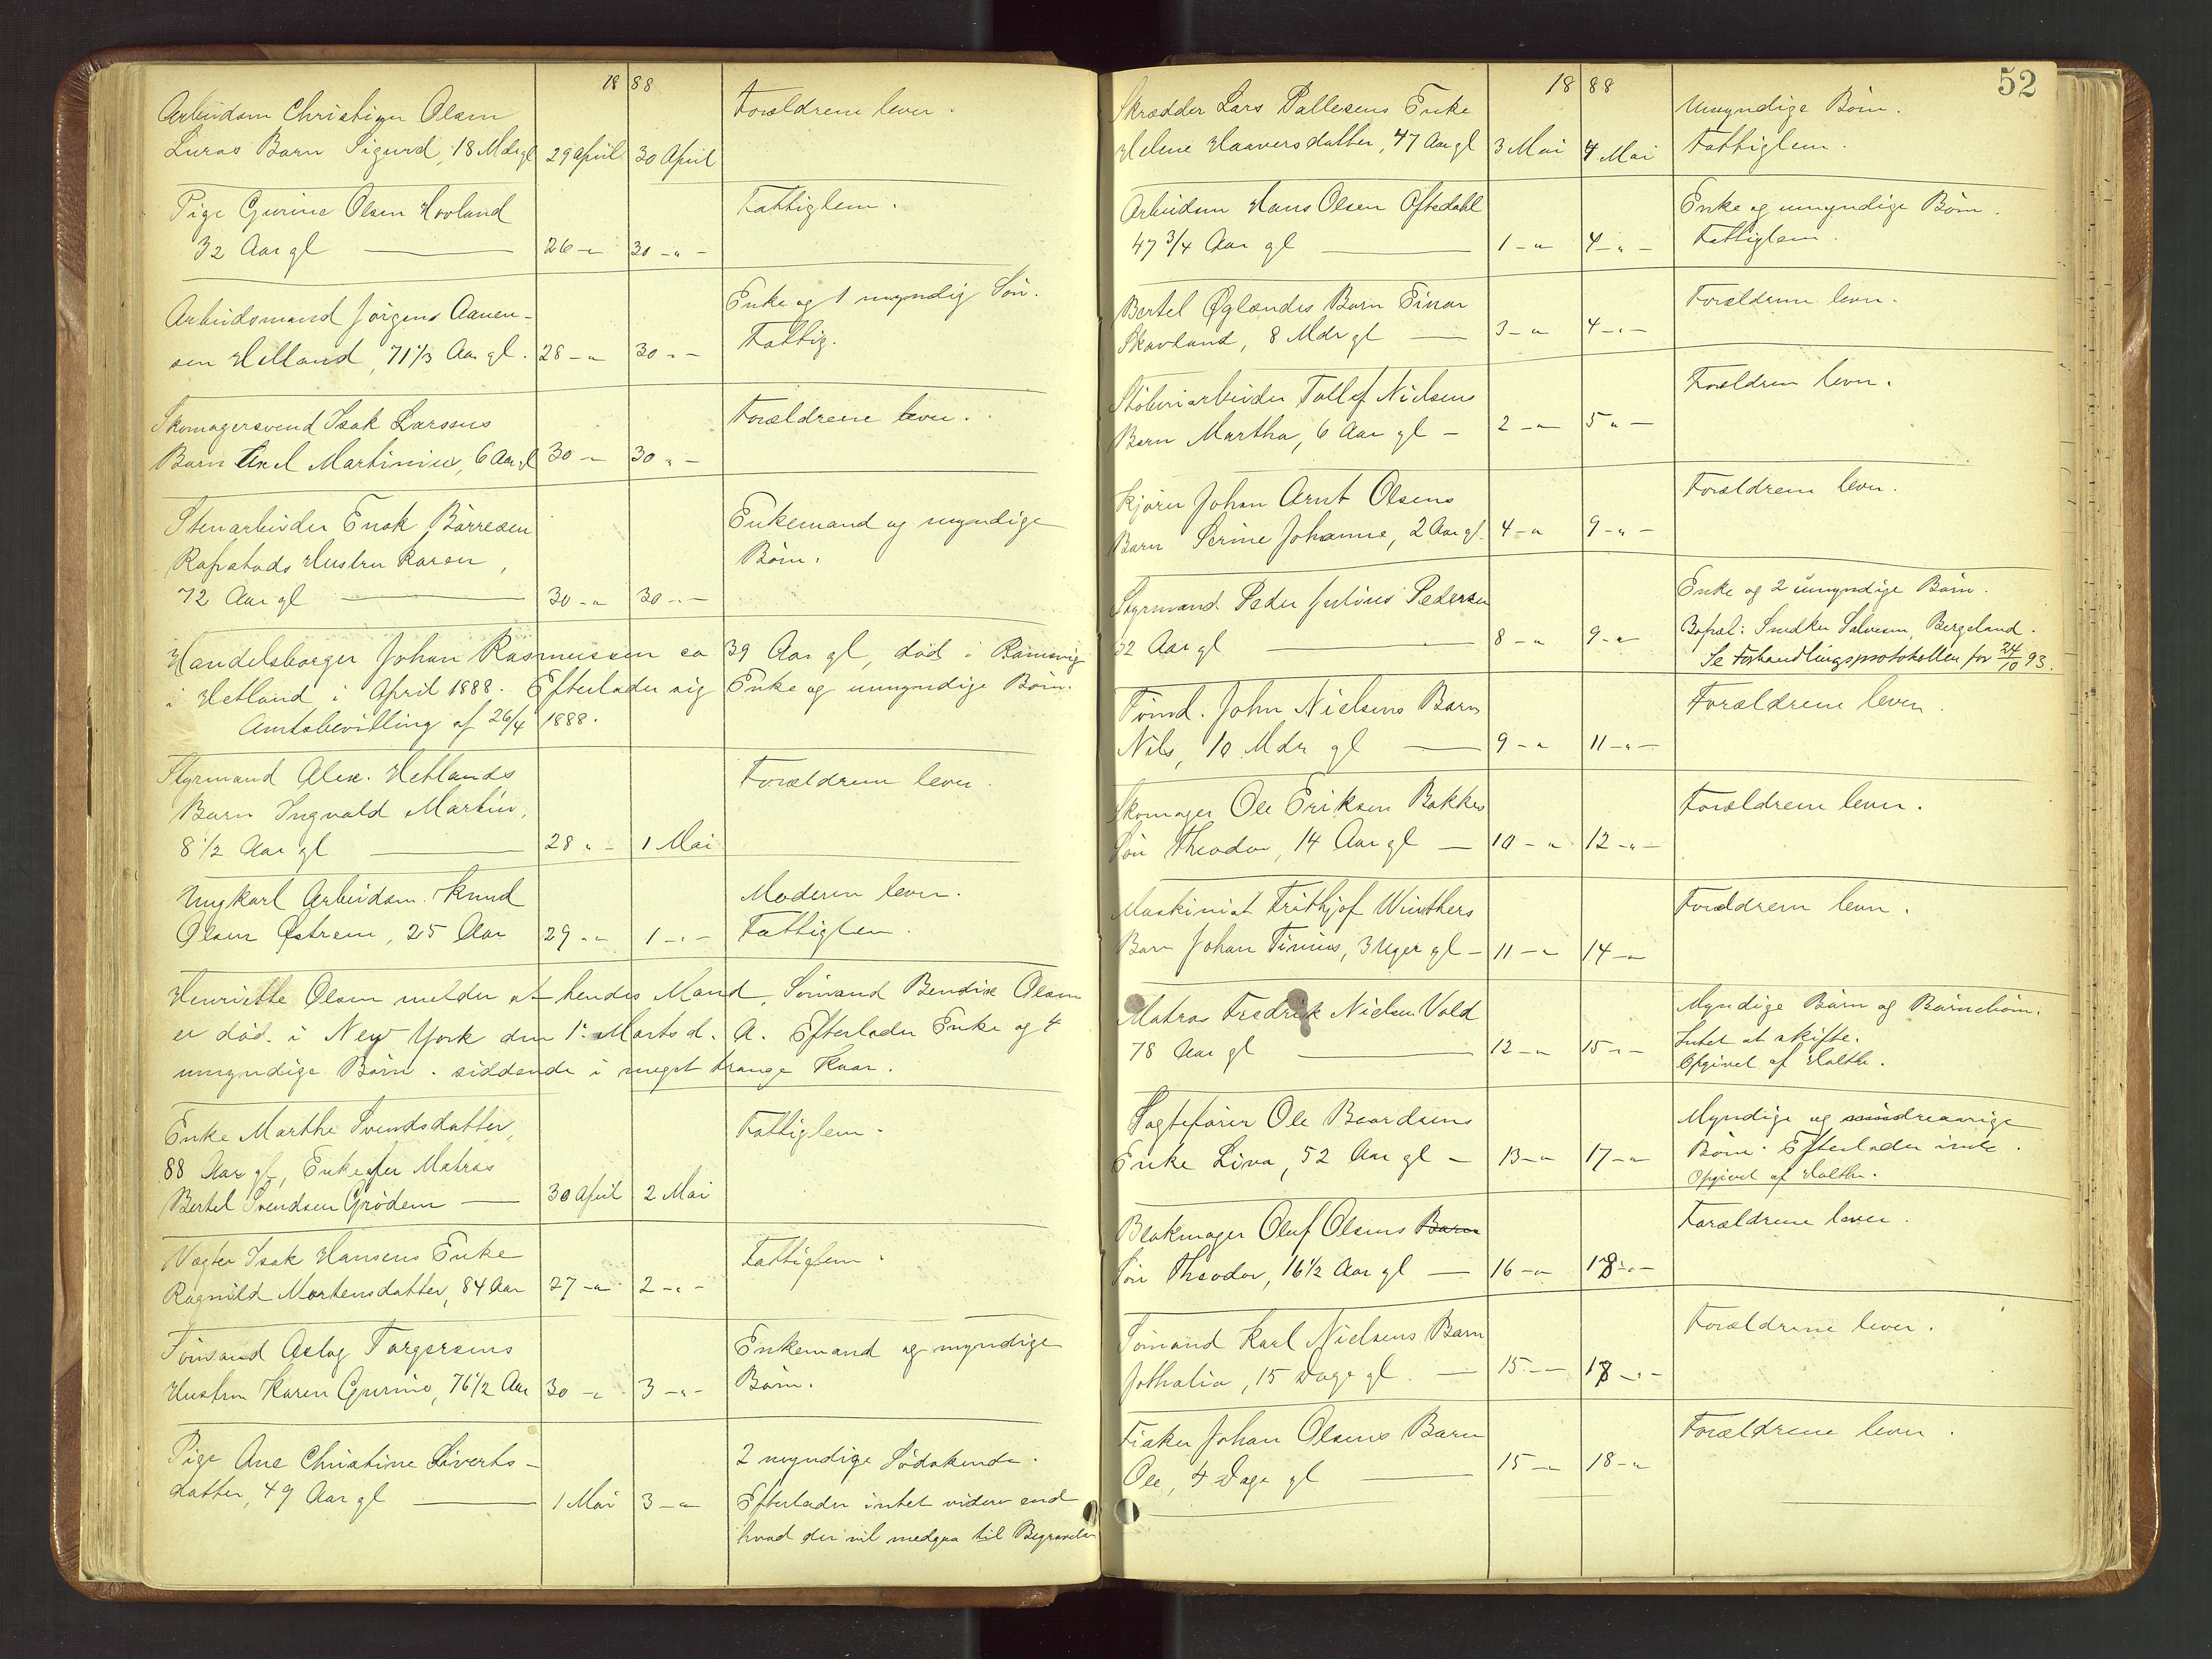 18 88
Arbeidsm Christian Olsen
Luras Barn Sigurd, 18 Mdr gl 29 April 30 April Forældrene lever.
Pige Gurine Olsen Hovland
32 Aar gl — 26 -"- 30 -"- Fattiglem.
Arbeidsmand Jörgens Aanen-
sen Helland, 71 1/3 Aar gl. 28 -"- 30 -"- Enke og 1 myndig Sön.
Fattig.
Skomagersvend Isak Larsens
Barn Axel Martinius, 6 Aar gl 30 -"- 30 -"- Forældrene lever.
Stenarbeider Enok Börresen
Rapstads Hustru Karen,
72 Aar gl — 30 -"- 30 -"- Enkemand og myndige
Börn.
Handelsborger Johan Rasmussen ca 39 Aar gl, död i
i Hetland i April 1888. Efterlader sig Enke og umyndige Börn.
Amtsbevilling af 26/4 1888.
Styrmand Alex. Hetlands
Barn Ingvald Martin,
8 1/2 Aar gl — 28 -"- 1 Mai Forældrene lever.
Ungkarl Arbeidsm. Knud
Olsen Østrem, 25 Aar 29 -"- 1 -"- Moderen lever.
Fattiglem.
Henriette Olsen melder at hendes Mand, Sömand Bendix Olsen
er död i New York den 1. Marts d. A. Efterlader Enke og 4
umyndige Börn. siddende i meget trange Kaar.
Enke Marthe Svendsdatter,
88 Aar gl, Enke efter Matros
Bertel Svendsen Grödem — 30 April 2 Mai Fattiglem.
Vægter Isak Hansens Enke
Ragnild Mortensdatter, 84 Aar 27 -"- 2 -"- Fattiglem.
Tömand Aslag Torgersens
Hustru Karen Gurine, 76 1/2 Aar 30 -"- 3 -"- Enkemand og myndige
Börn.
Pige Ane Christine Siverts-
datter, 49 Aar gl — 1 Mai 3 -"- 2 myndige Södskende.
Efterlader intet videre end
hvad der vil medgaa til Begravelse
52
18 88
Skrædder Lars Pallesens Enke
Helene Haaversdatter, 47 Aar gl 3 Mai 4 Mai Umyndige Börn.
Fattiglem.
Arbeidsm Hans Olsen Oftedahl
47 3/4 Aar gl — 1 -"- 4 -"- Enke og umyndige Börn.
Fattiglem.
Bertel Øglænds Barn Einar
Skavland, 8 Mdr gl — 3 -"- 4 -"- Forældrene lever.
Stöberiarbeider Tollef Nielsens
Barn Martha, 6 Aar gl — 2 -"- 5 -"- Forældren lever.
Kjörer Johan Arnt Olsens
Barn Serine Johanne, 2 Aar gl. 4 -"- 9 -"- Forældrene lever.
Styrmand Peder Julius Pedersen
32 Aar gl — 8 -"- 9 -"- Enke og 2 umyndige Börn.
Bopæl: Snedker Salvesen, Bergeland.
Se Forhandlingsprotokollen for 24/10 93.
Tömd. John Nielsens Barn
Nils, 10 Mdr gl — 9 -"- 11 -"- Forældrene lever.
Skomager Ole Eriksen Bakkes
Sön Theodor, 14 Aar gl — 10 -"- 12 -"- Forældrene lever.
Maskinist Frithjof Winthers
Barn Johan Tinius, 3 Uger gl — 11 -"- 14 -"- Forældrene lever.
Matros Fredrik Nielsen Vold
78 Aar gl — 12 -"- 15 -"- Myndige Börn og Börnebörn.
Intet at skifte.
Opgivet af Holthe.
Jagtefører Ole Baardsens
Enke Liva, 52 Aar gl — 13 -"- 17 -"- Myndige og mindreaarige
Börn. Efterlader intet.
Opgivet af Holthe.
Blokmager Oluf Olsens Barn
Sön Theodor, 16 1/2 Aar gl — 16 -"- 18 -"- Forældrene lever.
Tömand Karl Nielsens Barn
Jothalia, 15 Dage gl. — 15 -"- 18 -"- Forældrene lever.
Fisker Johan Olsens Barn
Ole, 4 Dage gl — 15 -"- 18 -"- Forældrene lever.